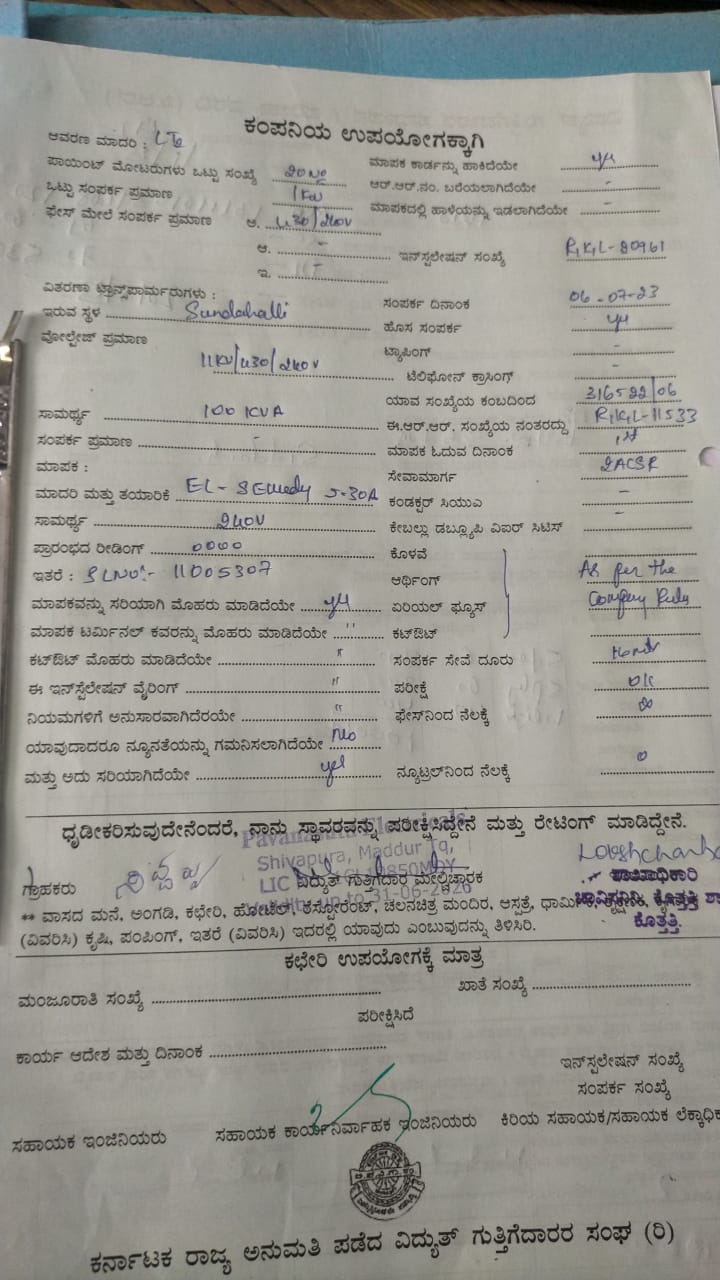 ಕಂಪನಿಯ ಉಪಯೋಗಕ್ಕಾಗಿ
ಆವರಣ ಮಾದರಿ :
ಮಾಪಕ ಕಾರ್ಡನ್ನು ಹಾಕಿದೆಯೇ
ಪಾಯಿಂಟ್ ಮೋಟರುಗಳು ಒಟ್ಟು ಸಂಖ್ಯೆ
ಆರ್.ಆರ್.ನಂ. ಬರೆಯಲಾಗಿದೆಯೇ -
ಒಟ್ಟು ಸಂಪರ್ಕ ಪ್ರಮಾಣ 1KW
ಮಾಪಕದಲ್ಲಿ ಹಾಳೆಯನ್ನು ಇಡಲಾಗಿದೆಯೇ -
ಫೇಸ್ ಮೇಲೆ ಸಂಪರ್ಕ ಪ್ರಮಾಣ ಅ. 430/240V
ಆ. -
ಇನ್‌ಸ್ಪಲೇಷನ್ ಸಂಖ್ಯೆ RKL-80961
ಇ.
ವಿತರಣಾ ಟ್ರಾನ್ಸ್‌ಪಾರ್ಮರುಗಳು :
ಸಂಪರ್ಕ ದಿನಾಂಕ 06-07-23
ಇರುವ ಸ್ಥಳ Sundahalli
ಹೊಸ ಸಂಪರ್ಕ
ವೋಲ್ಟೇಜ್ ಪ್ರಮಾಣ 11KV/430/240V
ಟ್ಯಾಪಿಂಗ್ -
ಟೆಲಿಫೋನ್ ಕ್ರಾಸಿಂಗ್ -
ಯಾವ ಸಂಖ್ಯೆಯ ಕಂಬದಿಂದ 316522/06
ಸಾಮರ್ಥ್ಯ 100 KVA
ಈ.ಆರ್.ಆರ್. ಸಂಖ್ಯೆಯ ನಂತರದ್ದು RKL-11533
ಸಂಪರ್ಕ ಪ್ರಮಾಣ -
ಮಾಪಕ ಓದುವ ದಿನಾಂಕ 1st
ಮಾಪಕ :
ಸೇವಾಮಾರ್ಗ 2ACSR
ಮಾದರಿ ಮತ್ತು ತಯಾರಿಕೆ 5-30A
ಕಂಡಕ್ಟರ್ ಸಿಯುಎ -
ಸಾಮರ್ಥ್ಯ 240V
ಕೇಬಲ್ಲು ಡಬ್ಲ್ಯೂಪಿ ವಿಐರ್ ಸಿಟಿಸ್ -
ಪ್ರಾರಂಭದ ರೀಡಿಂಗ್ 0000
ಕೊಳವೆ
ಇತರೆ : SLNO:- 11005307
ಆರ್ಥಿಂಗ್ As per the
ಮಾಪಕವನ್ನು ಸರಿಯಾಗಿ ಮೊಹರು ಮಾಡಿದೆಯೇ
ಏರಿಯಲ್ ಫ್ಯೂಸ್ Company Rules
ಮಾಪಕ ಟರ್ಮಿನಲ್ ಕವರನ್ನು ಮೊಹರು ಮಾಡಿದೆಯೇ "
ಕಟ್‌ಔಟ್
ಕಟ್‌ಔಟ್ ಮೊಹರು ಮಾಡಿದೆಯೇ "
ಸಂಪರ್ಕ ಸೇವೆ ದೂರು
ಈ ಇನ್‌ಸ್ಪೆಲೇಷನ್ ವೈರಿಂಗ್ "
ಪರೀಕ್ಷೆ OK
ನಿಯಮಗಳಿಗೆ ಅನುಸಾರವಾಗಿದೆರಯೇ "
ಫೇಸ್‌ನಿಂದ ನೆಲಕ್ಕೆ
ಯಾವುದಾದರೂ ನ್ಯೂನತೆಯನ್ನು ಗಮನಿಸಲಾಗಿದೆಯೇ No
ಮತ್ತು ಅದು ಸರಿಯಾಗಿದೆಯೇ yes
ನ್ಯೂಟ್ರಲ್‌ನಿಂದ ನೆಲಕ್ಕೆ 0
ಧೃಡೀಕರಿಸುವುದೇನೆಂದರೆ, ನಾನು ಸ್ಥಾವರವನ್ನು ಪರೀಕ್ಷಿಸಿದ್ದೇನೆ ಮತ್ತು ರೇಟಿಂಗ್ ಮಾಡಿದ್ದೇನೆ.
Shivapura, Maddur Tq,
ಗ್ರಾಹಕರು
ವಿದ್ಯುತ್ ಗುತ್ತಿಗೆದಾರ ಮೇಲ್ವಿಚಾರಕ
** ವಾಸದ ಮನೆ, ಅಂಗಡಿ, ಕಛೇರಿ, ಹೋಟೆಲ್, ರೆಸ್ಟೋರೆಂಟ್, ಚಲನಚಿತ್ರ ಮಂದಿರ, ಆಸ್ಪತ್ರೆ, ಧಾರ್ಮಿಕ,
(ವಿವರಿಸಿ) ಕೃಷಿ, ಪಂಪಿಂಗ್, ಇತರೆ (ವಿವರಿಸಿ) ಇದರಲ್ಲಿ ಯಾವುದು ಎಂಬುವುದನ್ನು ತಿಳಿಸಿರಿ.
ಕೊತ್ತತ್ತಿ.
ಕಛೇರಿ ಉಪಯೋಗಕ್ಕೆ ಮಾತ್ರ
ಮಂಜೂರಾತಿ ಸಂಖ್ಯೆ
ಖಾತೆ ಸಂಖ್ಯೆ
ಪರೀಕ್ಷಿಸಿದೆ
ಕಾರ್ಯ ಆದೇಶ ಮತ್ತು ದಿನಾಂಕ
ಇನ್‌ಸ್ಪಲೇಷನ್ ಸಂಖ್ಯೆ
ಸಂಪರ್ಕ ಸಂಖ್ಯೆ
ಸಹಾಯಕ ಇಂಜಿನಿಯರು
ಸಹಾಯಕ ಕಾರ್ಯನಿರ್ವಾಹಕ ಇಂಜಿನಿಯರು
ಕಿರಿಯ ಸಹಾಯಕ/ಸಹಾಯಕ ಲೆಕ್ಕಾಧಿಕ
ಕರ್ನಾಟಕ ರಾಜ್ಯ ಅನುಮತಿ ಪಡೆದ ವಿದ್ಯುತ್ ಗುತ್ತಿಗೆದಾರರ ಸಂಘ (ರಿ)